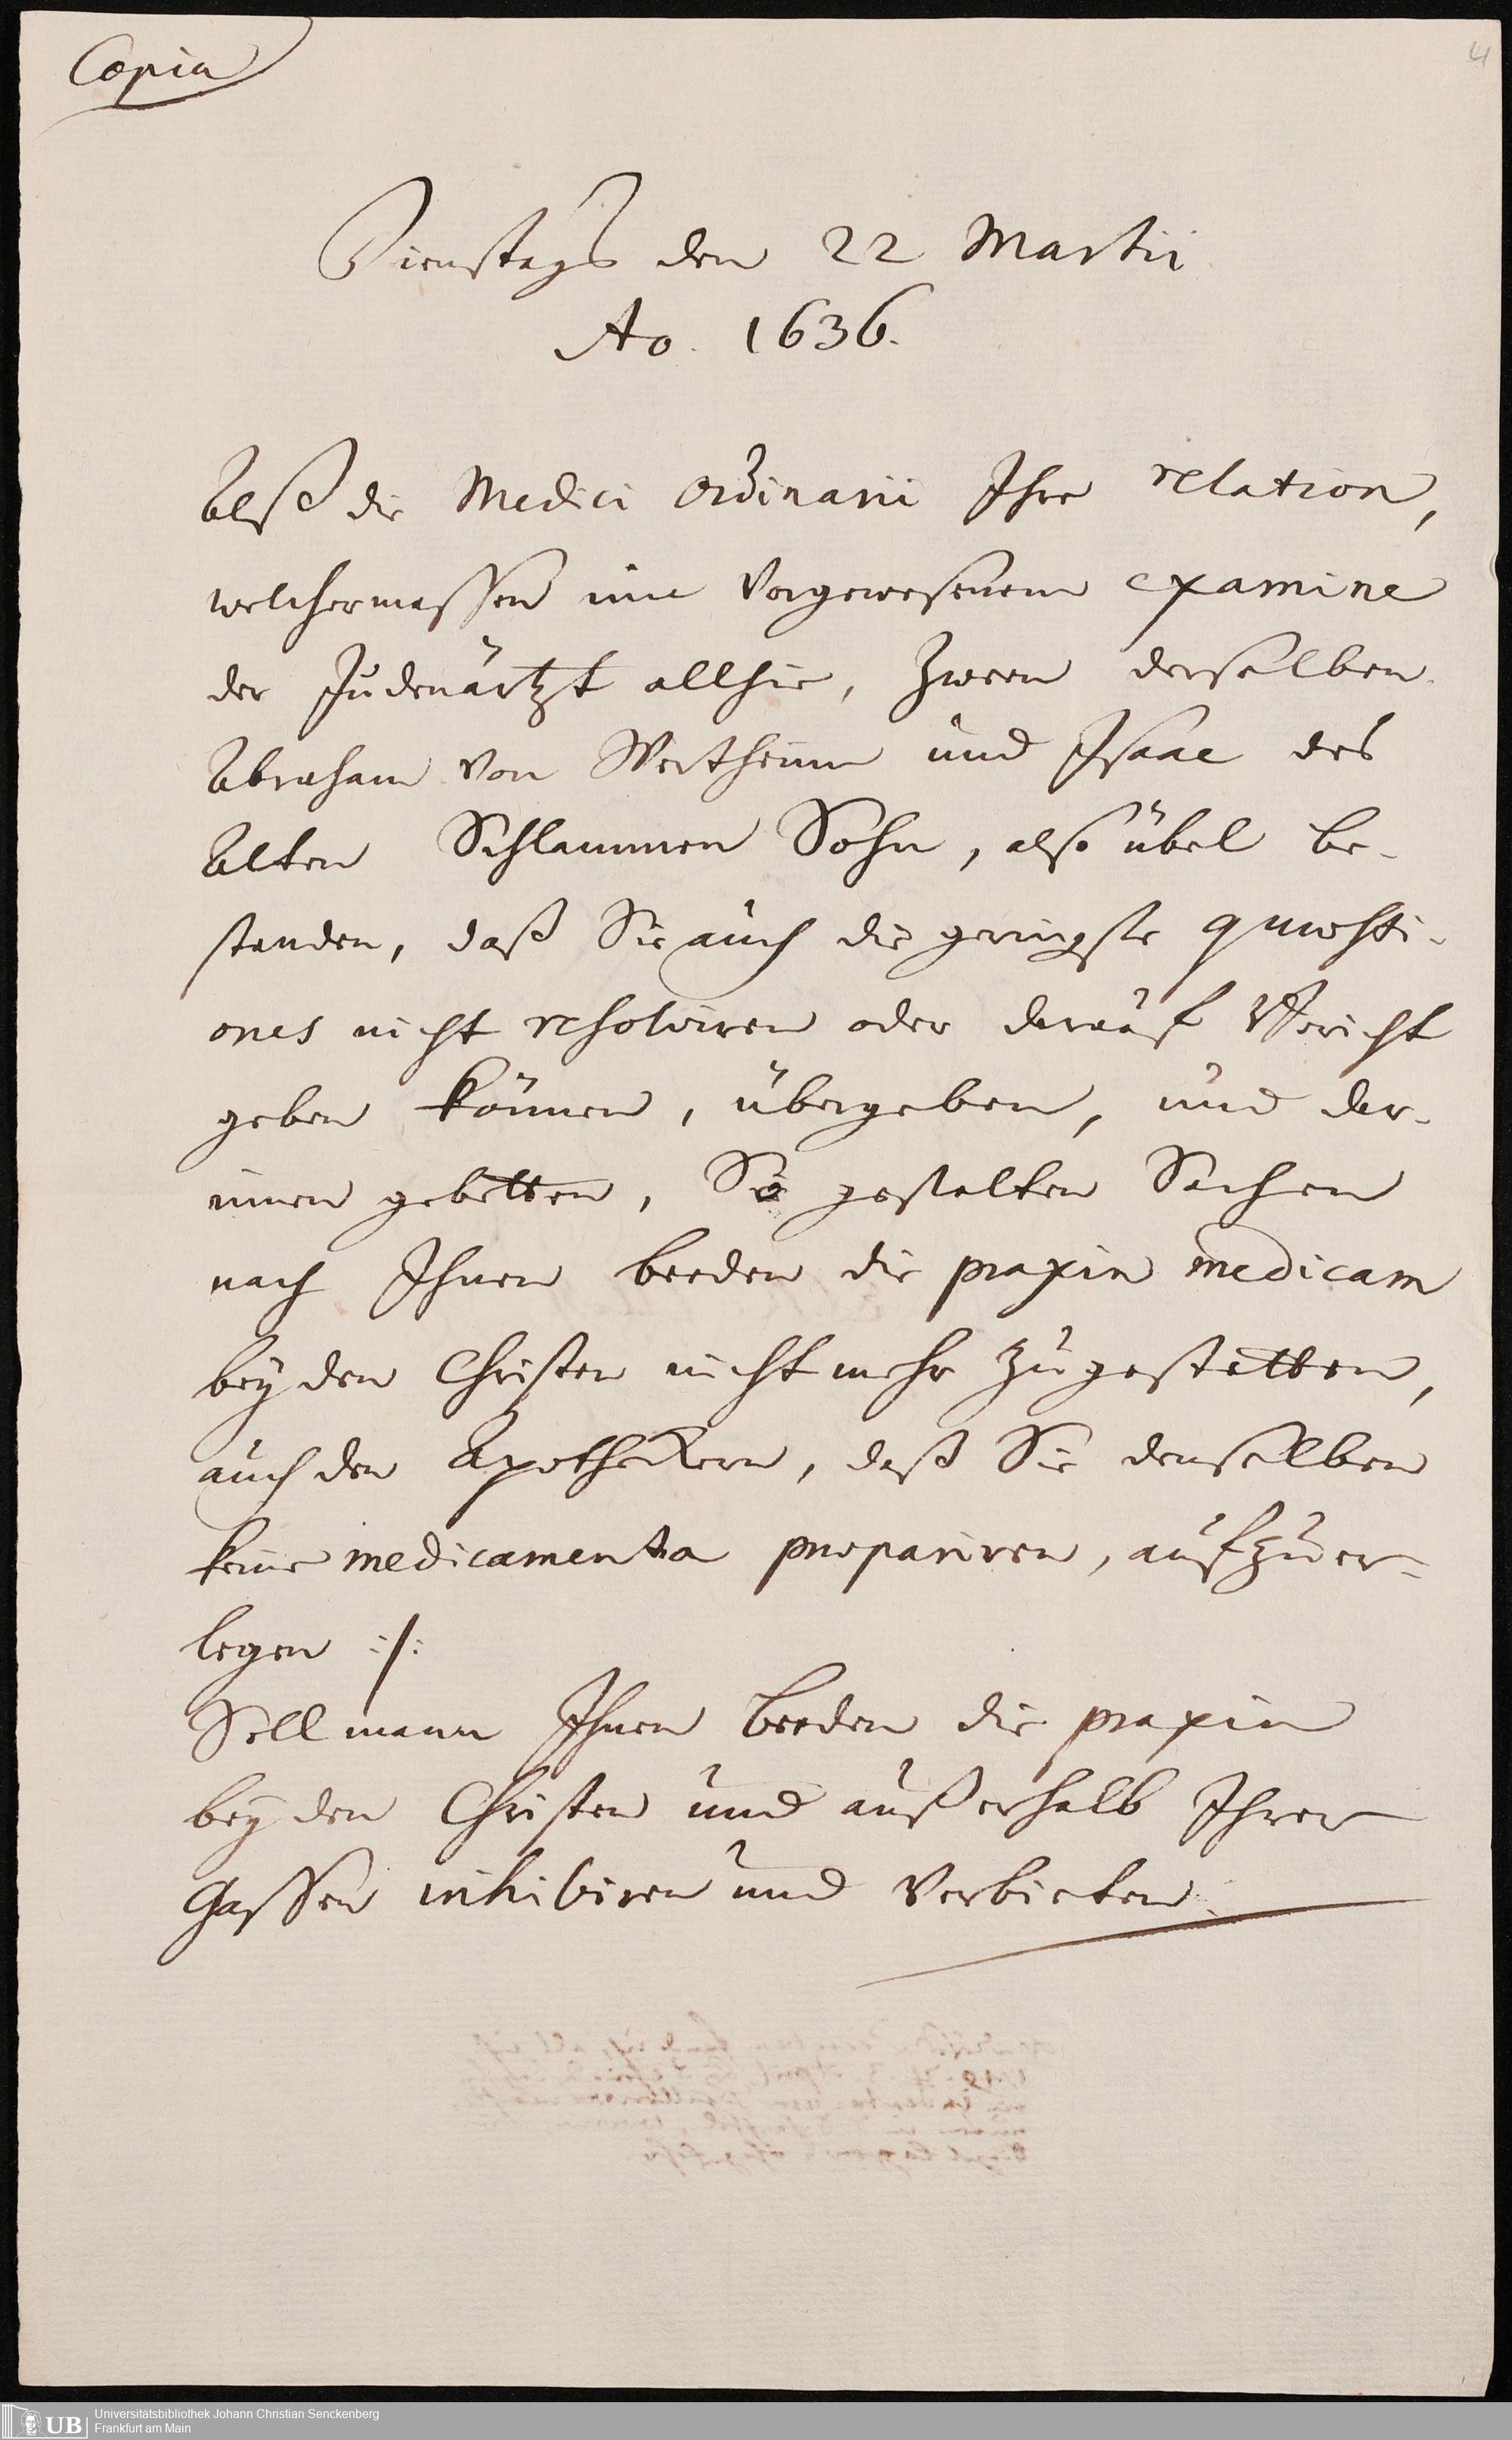 Copia
4
Dienstags den 22 Martii
Ao. 1636.
Alß die Medici Ordinarii Ihre relation,
welchermassen im Vorgewesenem examine
der Judenärtzt allhie, Zween derselben
Abraham Von Wertheim und Isaac des
Alten Schlammen Sohn, also übel be-
standen, daß Sie auch die geringste quaesti-
ones nicht resolviren oder darauf Bericht
geben können, übergeben, und dar-
innen gebetten, So gestalten Sachen
nach Ihnen beeden die praxin medicam
bey den Christen nicht mehr zugestatten,
auch den Apotheckern, daß Sie denselben
keine medicamenta praepariren, aufzuer-
legen :/:
Soll mann Ihnen beeden die praxin
bey den Christen und außerhalb Ihrer
Gassen inhibiren und Verbieten.
UB
Universitätsbibliothek Johann Christian Senckenberg
Frankfurt am Main